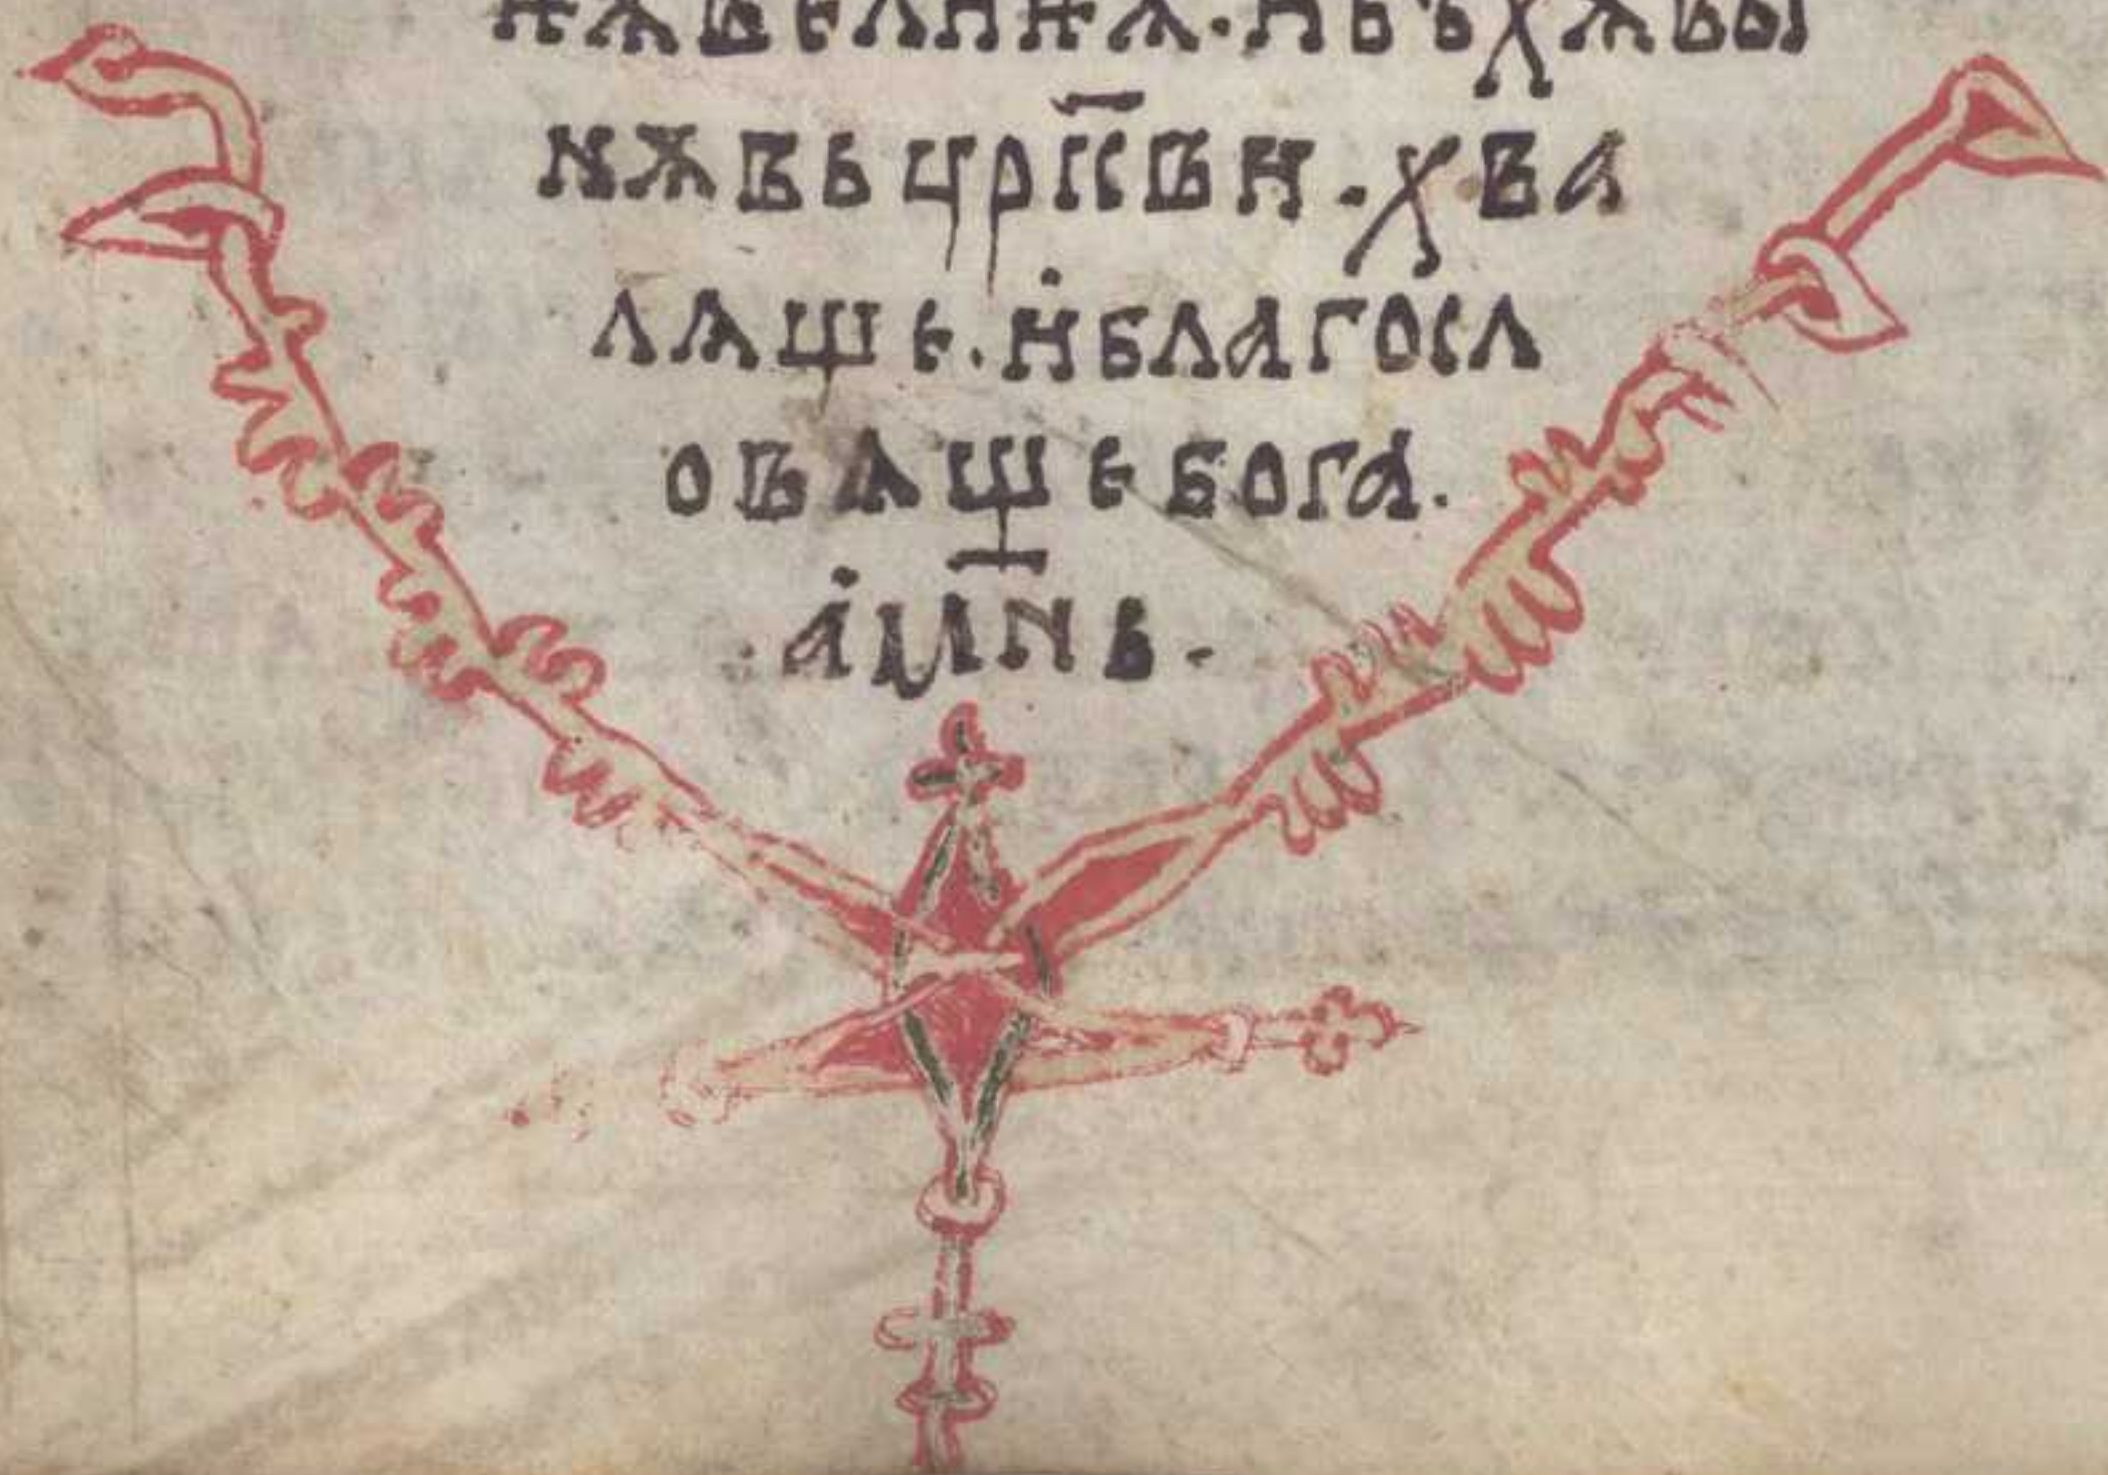 иѫвелииѫ·ибѣхѫвы
нѫвьцрк҃ви·хва
лѧще·и҆благосл
овѧщебога·
·а҆м҃нь·